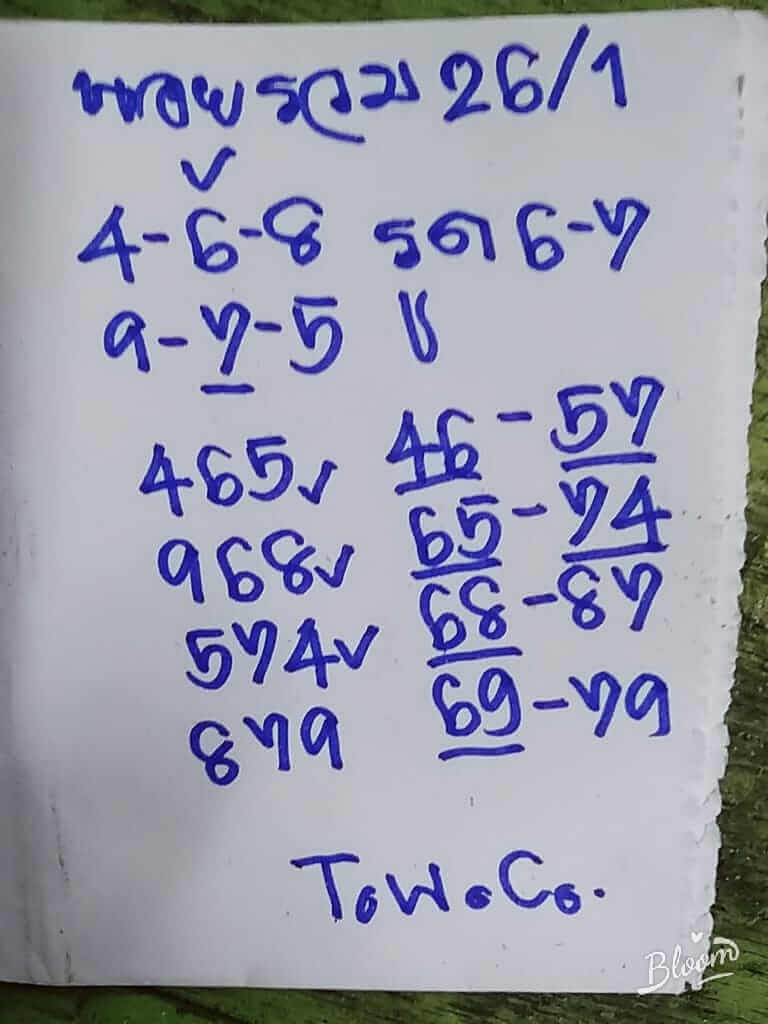 หอยรวม 26/1
4-6-8 รูด 6-7
9-7-5
465 46-57
968 65-74
574 68-87
879 69-79
T.W.C.
Bloom